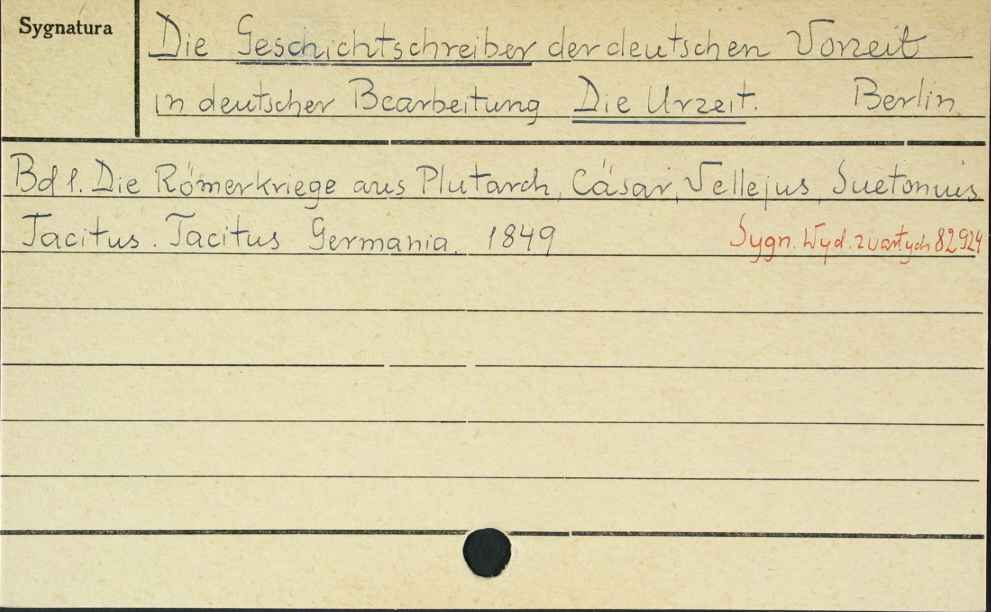 Sygnatura
Die Geschichtschreiber der deutschen Vorzeit
in deutscher Bearbeitung Die Urzeit. Berlin
Bd 1. Die Römerkriege aus Plutarch, Cäsar, Vellejus, Suetonius
Tacitus. Tacitus Germania. 1849
Sygn. Wyd. zwartych 82924